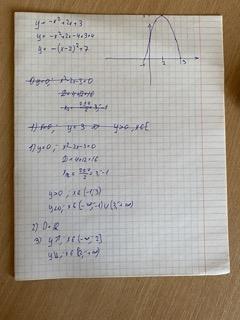 y = -x²+2x+3
y = -x²+2x-4+3+4
y = -(x-2)²+7
1) y=0,- x²-2x-3=0
D=4+12=16
1) x=0,- y=3 y>0, x∈[
1) y=0,- x²-2x-3=0
D=4+12=16
y>0 , x∈(-1;3)
y<0,- x∈(-∞;-1)∪(3;+∞)
2) D=R
3) y↗, x∈(-∞;2]
y↘, x∈[3;+∞)
2
3